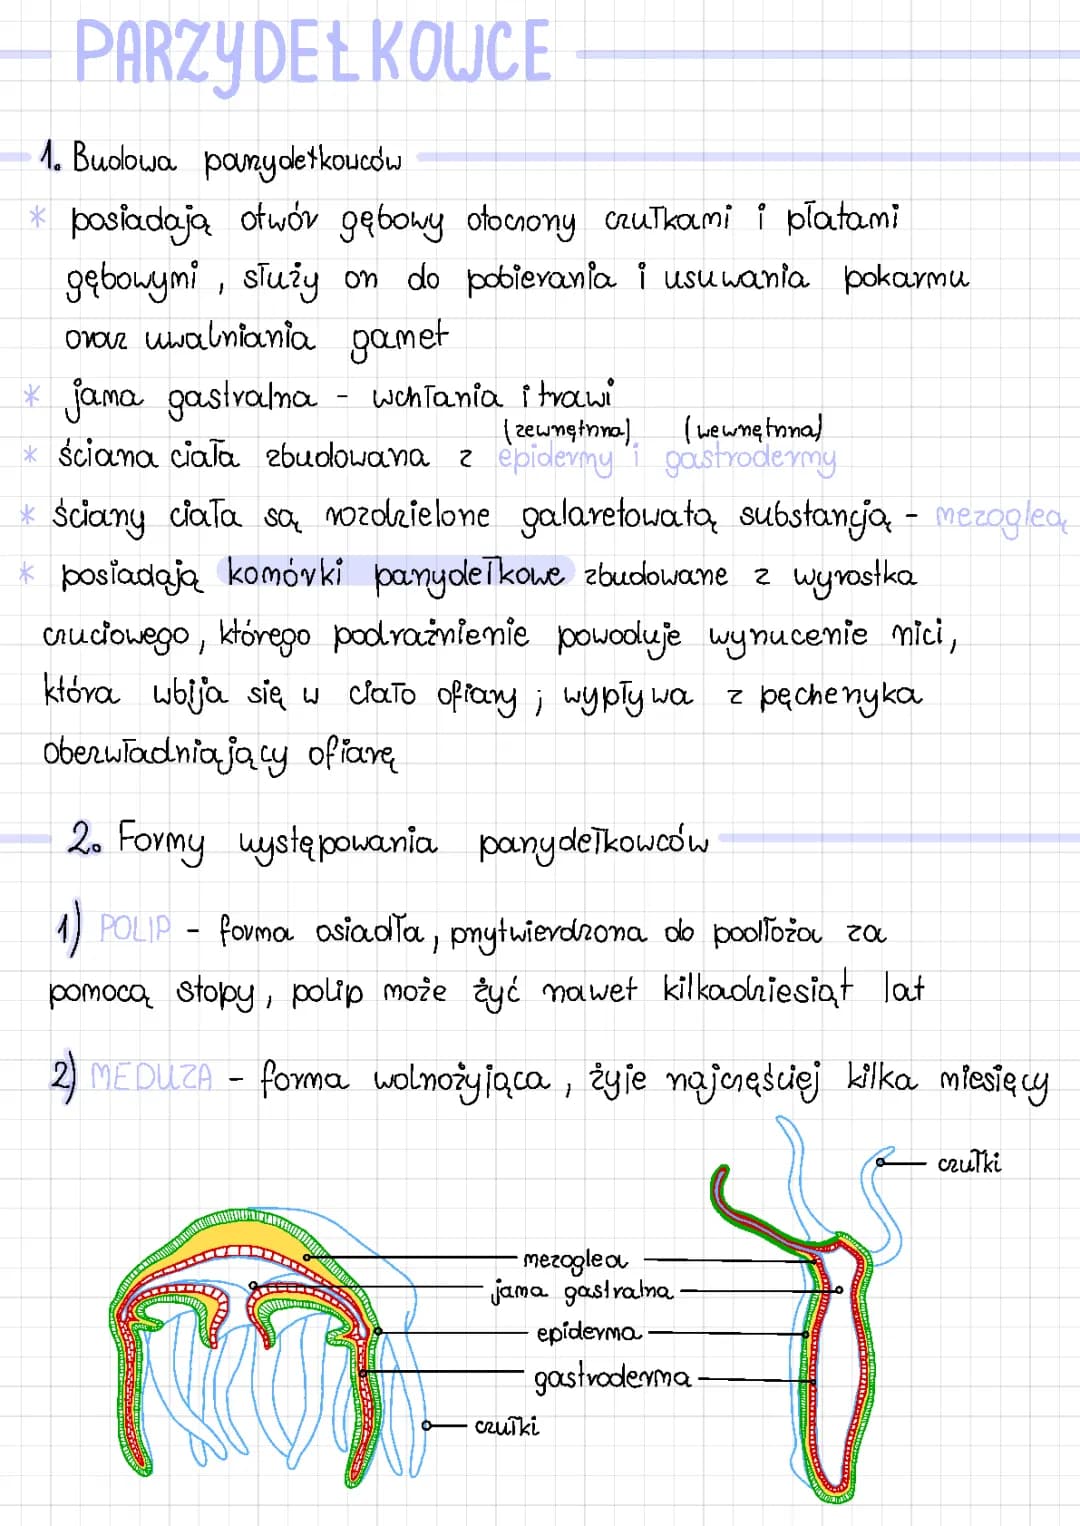 PARZYDEŁKOWCE
1. Budowa parzydełkowców
* posiadają otwór gębowy otoczony czułkami i płatami
gębowymi, służy on do pobierania i usuwania pokarmu
oraz uwalniania gamet
* jama gastralna - wchłania i trawi
(zewnętrzna) (wewnętrzna)
* ściana ciała zbudowana z epidermy i gastrodermy
* ściany ciała są rozdzielone galaretowatą substancją - mezogleą
* posiadają komórki parzydełkowe zbudowane z wyrostka
czuciowego, którego podrażnienie powoduje wyrzucenie nici,
która wbija się w ciało ofiary; wypływa z pęcherzyka
obezwładniający ofiarę
2. Formy występowania parzydełkowców
1) POLIP - forma osiadła, przytwierdzona do podłoża za
pomocą stopy, polip może żyć nawet kilkadziesiąt lat
2) MEDUZA - forma wolnożyjąca, żyje najczęściej kilka miesięcy
czułki
mezoglea
jama gastralna
epiderma
gastroderma
czułki